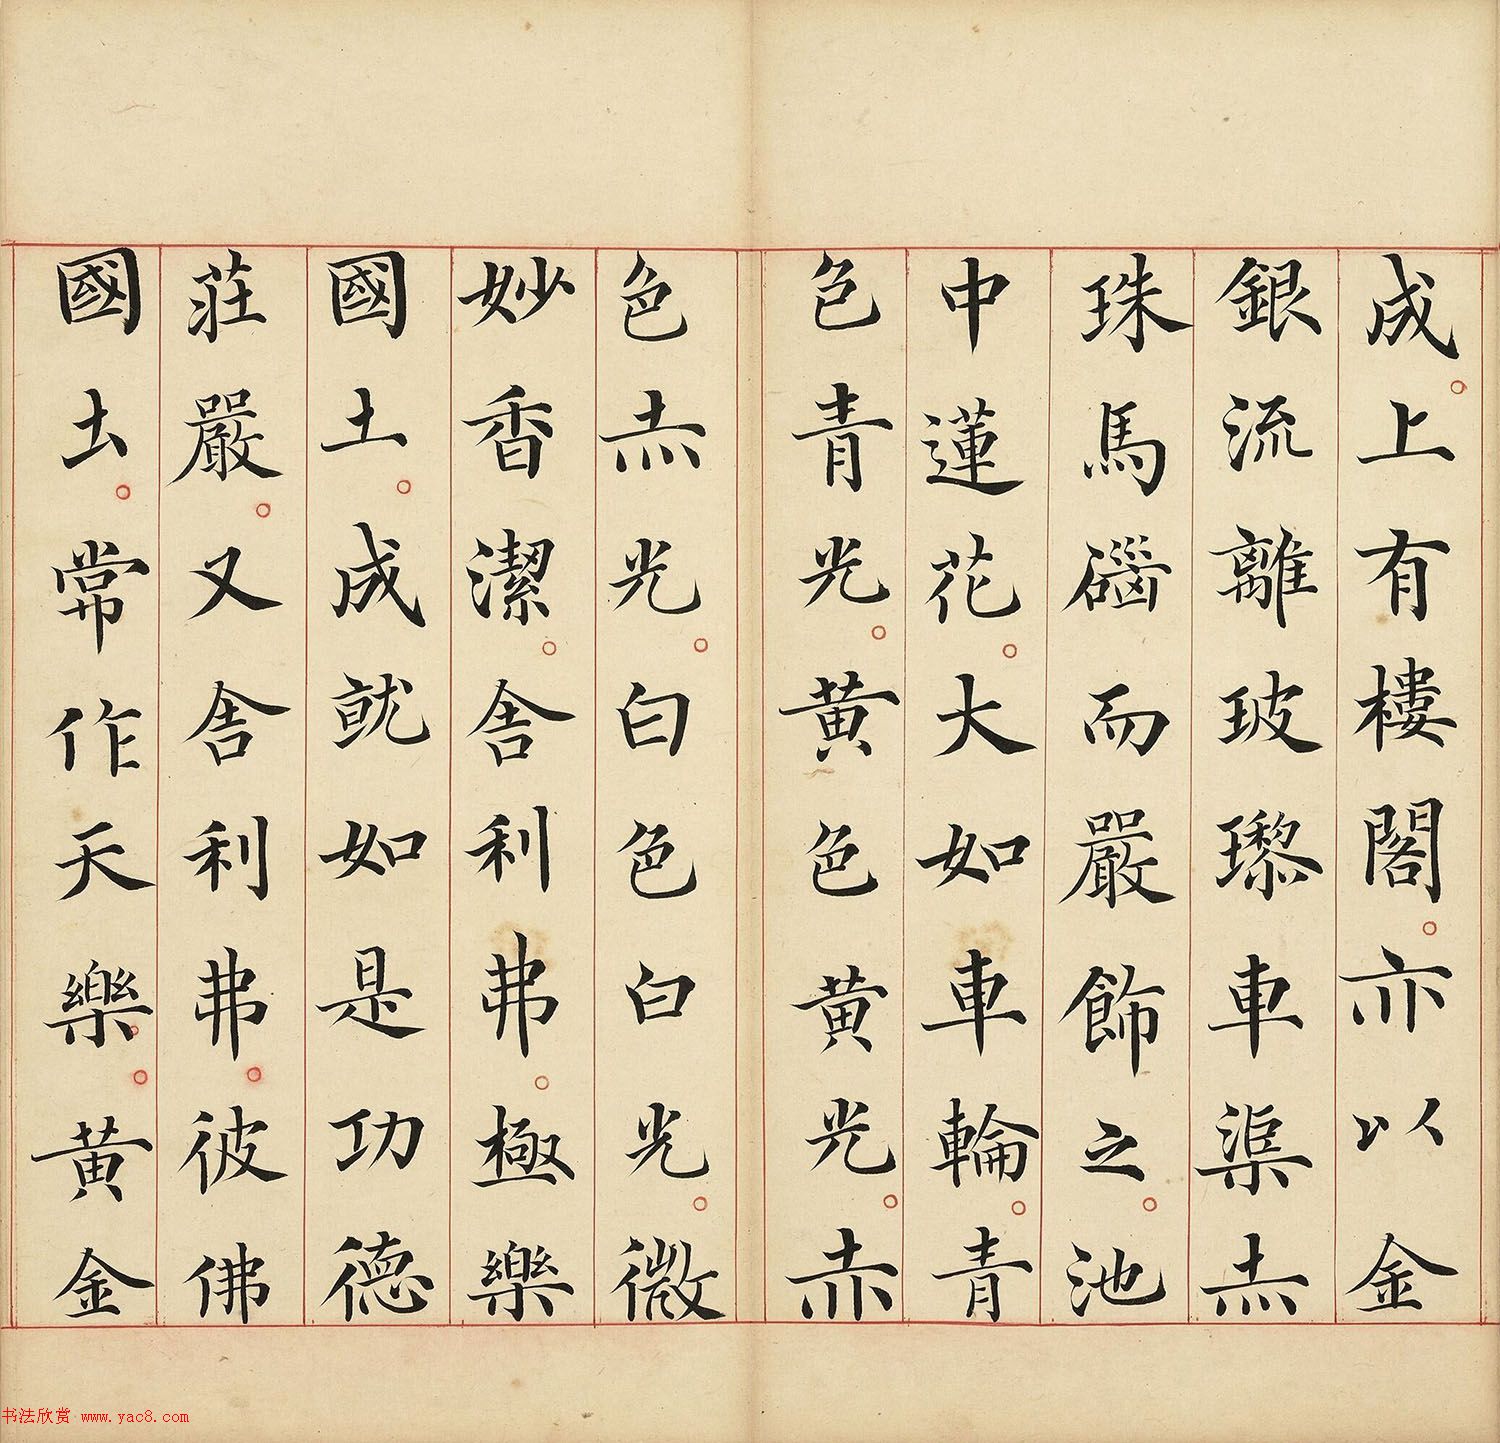 成上有樓閣亦以金
銀流離玻瓈車渠赤
珠馬碯而嚴飾之池
中蓮花大如車輪青
色青光黃色黃光赤
色赤光白色白光微
妙香潔舎利弗極樂
國土成就如是功德
莊嚴又舎利弗彼佛
國土常作天樂黃金
书法欣赏 www.yac8.com